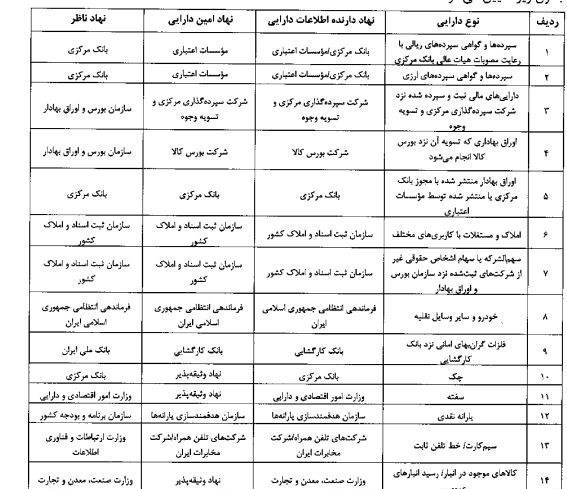 ردیف نوع دارایی نهاد دارنده اطلاعات دارایی نهاد امین دارایی نهاد ناظر
۱ سپرده‌ها و گواهی سپرده‌های ریالی با رعایت مصوبات هیات عالی بانک مرکزی بانک مرکزی/مؤسسات اعتباری مؤسسات اعتباری بانک مرکزی
۲ سپرده‌ها و گواهی سپرده‌های ارزی بانک مرکزی/مؤسسات اعتباری مؤسسات اعتباری بانک مرکزی
۳ دارایی‌های مالی ثبت و سپرده شده نزد شرکت سپرده‌گذاری مرکزی و تسویه وجوه شرکت سپرده‌گذاری مرکزی و تسویه وجوه شرکت سپرده‌گذاری مرکزی و تسویه وجوه سازمان بورس و اوراق بهادار
۴ اوراق بهاداری که تسویه آن نزد بورس کالا انجام می‌شود شرکت بورس کالا شرکت بورس کالا سازمان بورس و اوراق بهادار
۵ اوراق بهادار منتشر شده با مجوز بانک مرکزی یا منتشر شده توسط مؤسسات اعتباری بانک مرکزی بانک مرکزی بانک مرکزی
۶ املاک و مستغلات با کاربری‌های مختلف سازمان ثبت اسناد و املاک کشور سازمان ثبت اسناد و املاک کشور سازمان ثبت اسناد و املاک کشور
۷ سهم‌الشرکه یا سهام اشخاص حقوقی غیر از شرکت‌های ثبت‌شده نزد سازمان بورس و اوراق بهادار سازمان ثبت اسناد و املاک کشور سازمان ثبت اسناد و املاک کشور سازمان ثبت اسناد و املاک کشور
۸ خودرو و سایر وسایل نقلیه فرماندهی انتظامی جمهوری اسلامی ایران فرماندهی انتظامی جمهوری اسلامی ایران فرماندهی انتظامی جمهوری اسلامی ایران
۹ فلزات گران‌بهای امانی نزد بانک کارگشایی بانک کارگشایی بانک کارگشایی بانک ملی ایران
۱۰ چک بانک مرکزی نهاد وثیقه‌پذیر بانک مرکزی
۱۱ سفته وزارت امور اقتصادی و دارایی نهاد وثیقه‌پذیر وزارت امور اقتصادی و دارایی
۱۲ یارانه نقدی سازمان هدفمندسازی یارانه‌ها سازمان هدفمندسازی یارانه‌ها سازمان برنامه و بودجه کشور
۱۳ سیم‌کارت/ خط تلفن ثابت شرکت‌های تلفن همراه/شرکت مخابرات ایران شرکت‌های تلفن همراه/شرکت مخابرات ایران وزارت ارتباطات و فناوری اطلاعات
۱۴ کالاهای موجود در انبار/ رسید انبارهای وزارت صنعت، معدن و تجارت نهاد وثیقه‌پذیر وزارت صنعت، معدن و تجارت